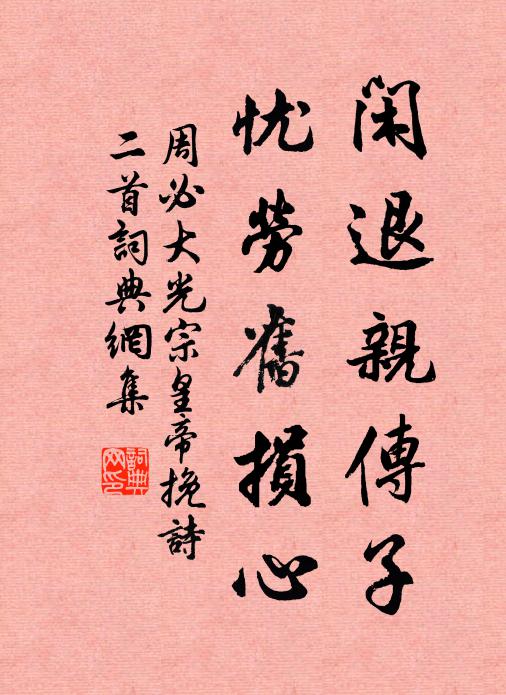 闲退親傳子
忧勞舊損心
周必大光宗皇帝挽詩
二首詞典網集
詞典
网印